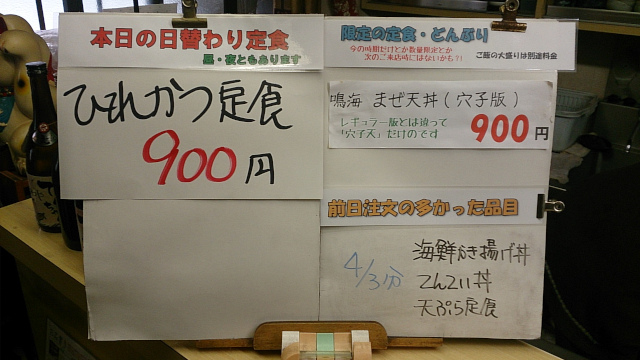 本日の日替わり定食
昼・夜ともあります
ひれかつ定食
900円
限定の定食・どんぶり
今の時期だけとか数量限定とか
次のご来店時にはないかも?!
ご飯の大盛りは別途料金
鳴海 まぜ天丼(穴子版)
レギュラー版とは違って
「穴子天」だけのです
900円
前日注文の多かった品目
4/3分
海鮮かき揚げ丼
てんこい丼
天ぷら定食